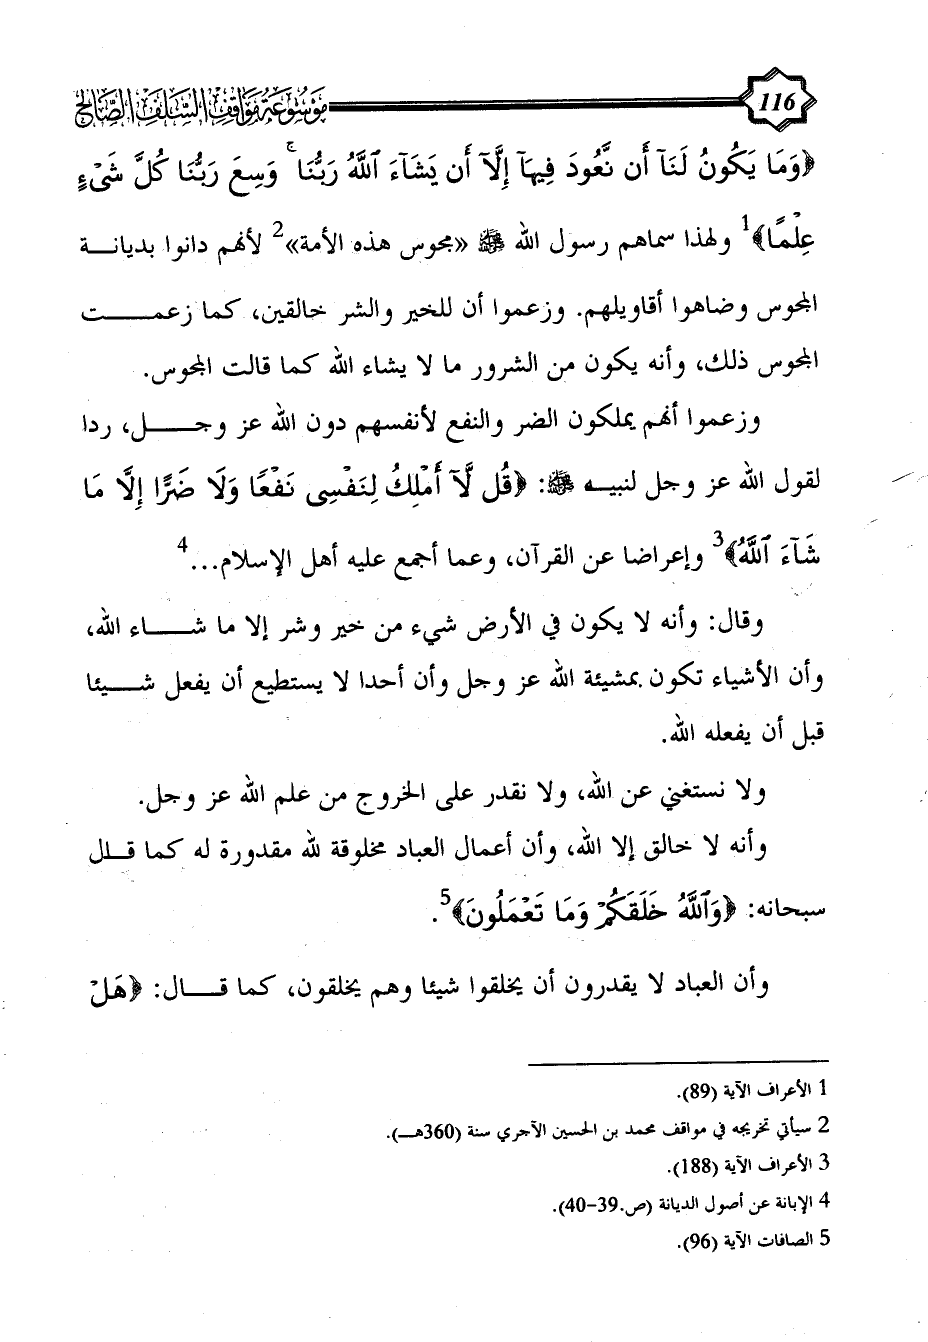 116 موسوعة مواقف السلف الصالح
﴿وَمَا يَكُونُ لَنَآ أَن نَّعُودَ فِيهَآ إِلَّآ أَن يَشَآءَ ٱللَّهُ رَبُّنَا ۚ وَسِعَ رَبُّنَا كُلَّ شَىْءٍ
عِلْمًا﴾1 ولهذا سماهم رسول الله ﷺ «مجوس هذه الأمة»2 لأنهم دانوا بديانــة
المجوس وضاهوا أقاويلهم. وزعموا أن للخير والشر خالقين، كما زعمــــت
المجوس ذلك، وأنه يكون من الشرور ما لا يشاء الله كما قالت المجوس.
وزعموا أنهم يملكون الضر والنفع لأنفسهم دون الله عز وجــــل، ردا
لقول الله عز وجل لنبيــه ﷺ: ﴿قُل لَّآ أَمْلِكُ لِنَفْسِى نَفْعًا وَلَا ضَرًّا إِلَّا مَا
شَآءَ ٱللَّهُ﴾3 وإعراضا عن القرآن، وعما أجمع عليه أهل الإسلام...4
وقال: وأنه لا يكون في الأرض شيء من خير وشر إلا ما شـــاء الله،
وأن الأشياء تكون بمشيئة الله عز وجل وأن أحدا لا يستطيع أن يفعل شــيئا
قبل أن يفعله الله.
ولا نستغني عن الله، ولا نقدر على الخروج من علم الله عز وجل.
وأنه لا خالق إلا الله، وأن أعمال العباد مخلوقة لله مقدورة له كما قــال
سبحانه: ﴿وَٱللَّهُ خَلَقَكُمْ وَمَا تَعْمَلُونَ﴾5.
وأن العباد لا يقدرون أن يخلقوا شيئا وهم يخلقون، كما قــــال: ﴿هَلْ
1 الأعراف الآية (89).
2 سيأتي تخريجه في مواقف محمد بن الحسين الآجري سنة (360هــ).
3 الأعراف الآية (188).
4 الإبانة عن أصول الديانة (ص.39-40).
5 الصافات الآية (96).